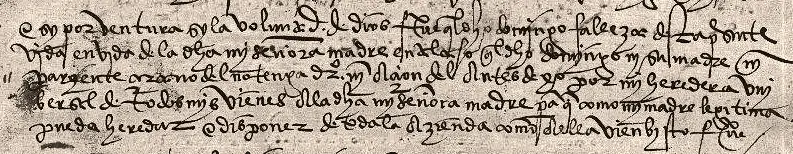 e sy por ventura sy la volunt d. de dios fue q l dho domingo fallezca desta presente
vida en vida de la dha mi señora madre en tal caso q l dho domingo ni su madre ni
pariente a cabo del no tenga dro. ni abcion del antes dexo por mi heredera vni
bersal de todos mis vienes a la dha mi señora madre pa q como mi madre legitima
pueda heredar e disponer de toda la azienda como a ella vien bisto fue